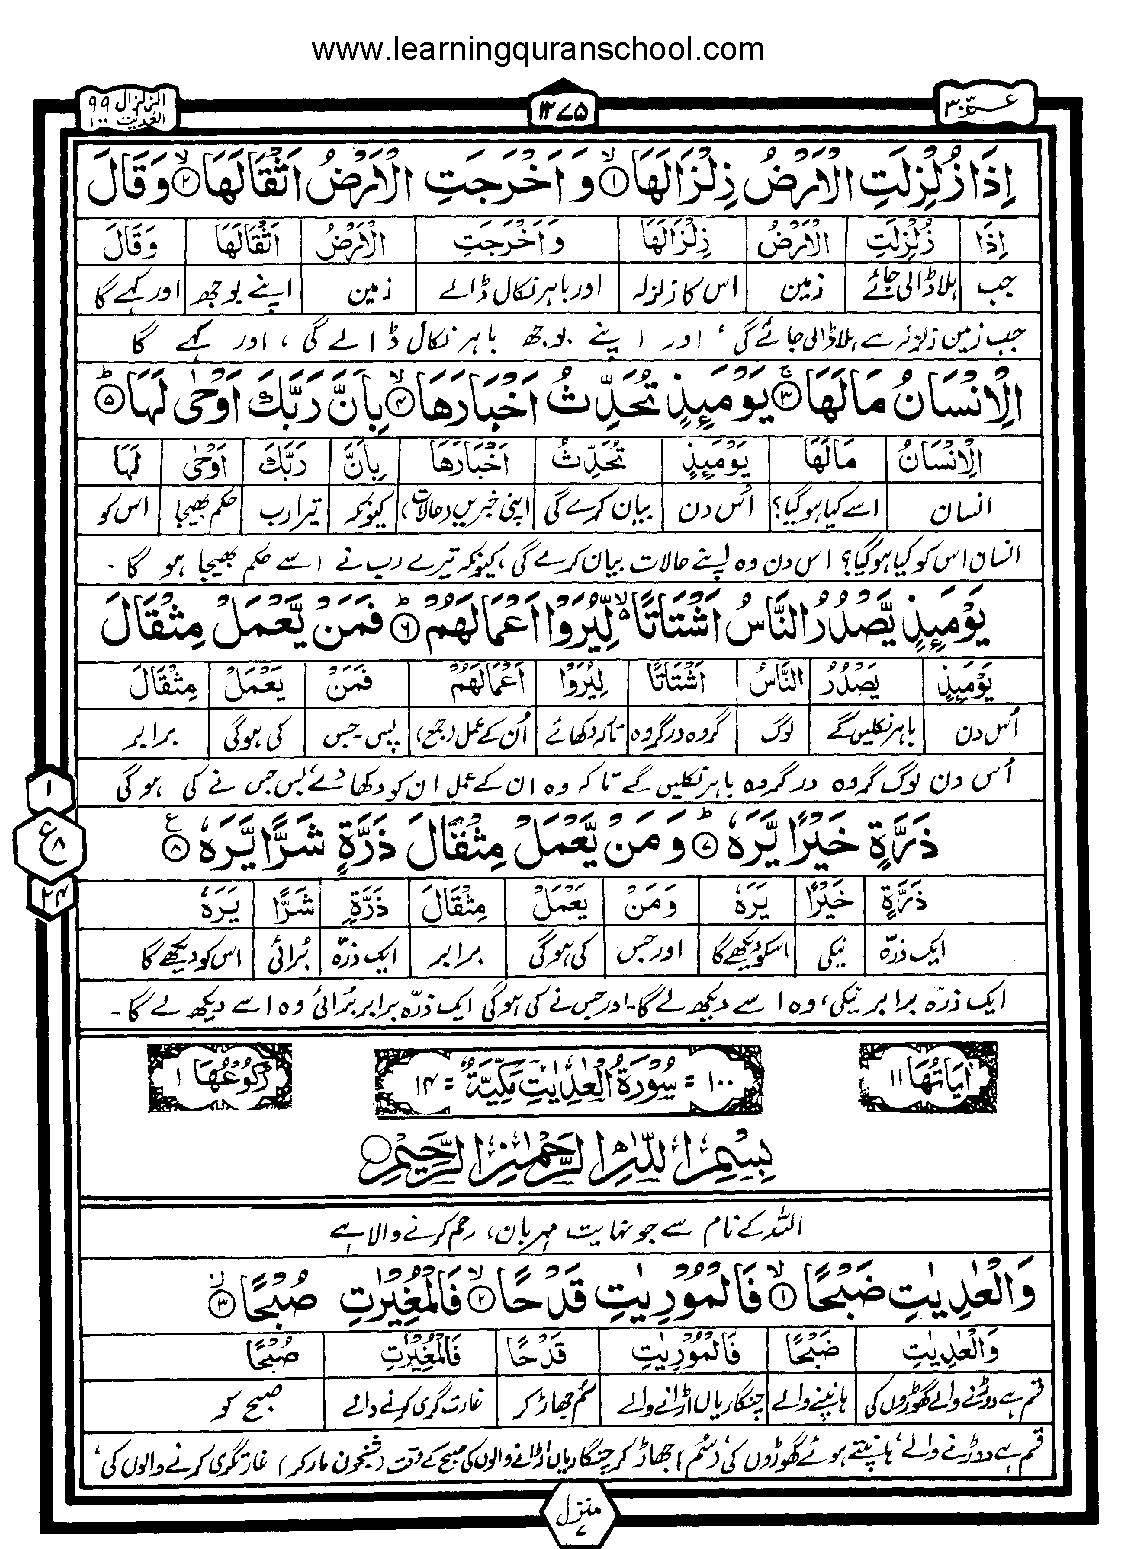 www.learningquranschool.com
الزلزال ٩٩
العديت ١٠٠
١٢٧٥
عم ٣٠
اِذَا زُلْزِلَتِ الْاَرْضُ زِلْزَالَهَا ۙ﴿۱﴾ وَ اَخْرَجَتِ الْاَرْضُ اَثْقَالَهَا ۙ﴿۲﴾ وَ قَالَ
اِذَا زُلْزِلَتِ الْاَرْضُ زِلْزَالَهَا وَاَخْرَجَتِ الْاَرْضُ اَثْقَالَهَا وَقَالَ
جب ہلا ڈالی جائے زمین اس کا زلزلہ اور باہر نکال ڈالے زمین اپنے بوجھ اور کہے گا
جب زمین زلزلہ سے ہلا ڈالی جائے گی، اور اپنے بوجھ باہر نکال ڈالے گی، اور کہے گا
الْاِنْسَانُ مَا لَهَا ۚ﴿۳﴾ يَوْمَئِذٍ تُحَدِّثُ اَخْبَارَهَا ۙ﴿۴﴾ بِاَنَّ رَبَّكَ اَوْحٰى لَهَا ؕ﴿۵﴾
الْاِنْسَانُ مَا لَهَا يَوْمَئِذٍ تُحَدِّثُ اَخْبَارَهَا بِاَنَّ رَبَّكَ اَوْحٰى لَهَا
انسان اسے کیا ہو گیا؟ اُس دن بیان کرے گی اپنی خبریں (حالات) کیونکہ تیرا رب حکم بھیجا اس کو
انسان اس کو کیا ہو گیا؟ اس دن وہ اپنے حالات بیان کرے گی، کیونکہ تیرے رب نے اسے حکم بھیجا ہو گا۔
يَوْمَئِذٍ يَّصْدُرُ النَّاسُ اَشْتَاتًا ۙ۬ لِّيُرَوْا اَعْمَالَهُمْ ؕ﴿۶﴾ فَمَنْ يَّعْمَلْ مِثْقَالَ
يَوْمَئِذٍ يَصْدُرُ النَّاسُ اَشْتَاتًا لِيُرَوْا اَعْمَالَهُمْ فَمَنْ يَعْمَلْ مِثْقَالَ
اُس دن باہر نکلیں گے لوگ گروہ در گروہ تاکہ دکھائے اُن کے عمل (جمع) پس جس کی ہوگی برابر
اُس دن لوگ گروہ در گروہ باہر نکلیں گے تاکہ وہ ان کے عمل ان کو دکھا دے، پس جس نے کی ہو گی
١
ع ٨
٢٤
ذَرَّةٍ خَيْرًا يَّرَهٗ ؕ﴿۷﴾ وَ مَنْ يَّعْمَلْ مِثْقَالَ ذَرَّةٍ شَرًّا يَّرَهٗ ﴿۸﴾ع
ذَرَّةٍ خَيْرًا يَرَهٗ وَمَنْ يَعْمَلْ مِثْقَالَ ذَرَّةٍ شَرًّا يَرَهٗ
ایک ذرّہ نیکی اسکو دیکھے گا اور جس کی ہوگی برابر ایک ذرّہ بُرائی اس کو دیکھے گا
ایک ذرّہ برابر نیکی، وہ اسے دیکھ لے گا۔ اور جس نے کی ہوگی ایک ذرّہ برابر بُرائی وہ اسے دیکھ لے گا۔
اٰيَاتُهَا ١١
١٠٠ = سُوْرَةُ الْعٰدِيٰتِ مَكِّيَّةٌ = ١٤
رُكُوْعُهَا ١
بِسْمِ اللّٰهِ الرَّحْمٰنِ الرَّحِيْمِ
اللہ کے نام سے جو نہایت مہربان، رحم کرنے والا ہے
وَالْعٰدِيٰتِ ضَبْحًا ۙ﴿۱﴾ فَالْمُوْرِيٰتِ قَدْحًا ۙ﴿۲﴾ فَالْمُغِيْرٰتِ صُبْحًا ۙ﴿۳﴾
وَالْعٰدِيٰتِ ضَبْحًا فَالْمُوْرِيٰتِ قَدْحًا فَالْمُغِيْرٰتِ صُبْحًا
قسم ہے دوڑنے والے گھوڑوں کی ہانپنے والے چنگاریاں اڑانے والے سُم جھاڑ کر غارت گری کرنے والے صبح کو
قسم ہے دوڑنے والے، ہانپتے ہوئے گھوڑوں کی، (سُم) جھاڑ کر چنگاریاں اڑانے والوں کی صبح کے وقت (شبخون مار کر) غارتگری کرنے والوں کی،
منزل ٧